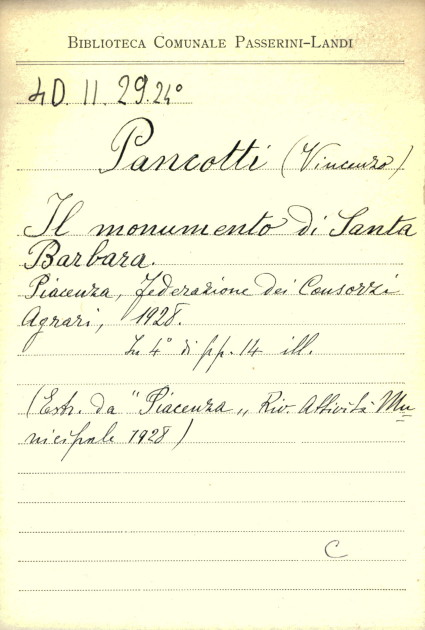 BIBLIOTECA COMUNALE PASSERINI-LANDI
4D. II. 29.24°
Pancotti (Vincenzo)
Il monumento di Santa
Barbara.
Piacenza, Federazione dei Consorzi
Agrari, 1928.
In 4° di pp. 14 ill.
(Estr. da "Piacenza„ Riv. Attività Mu
nicipale 1928)
C